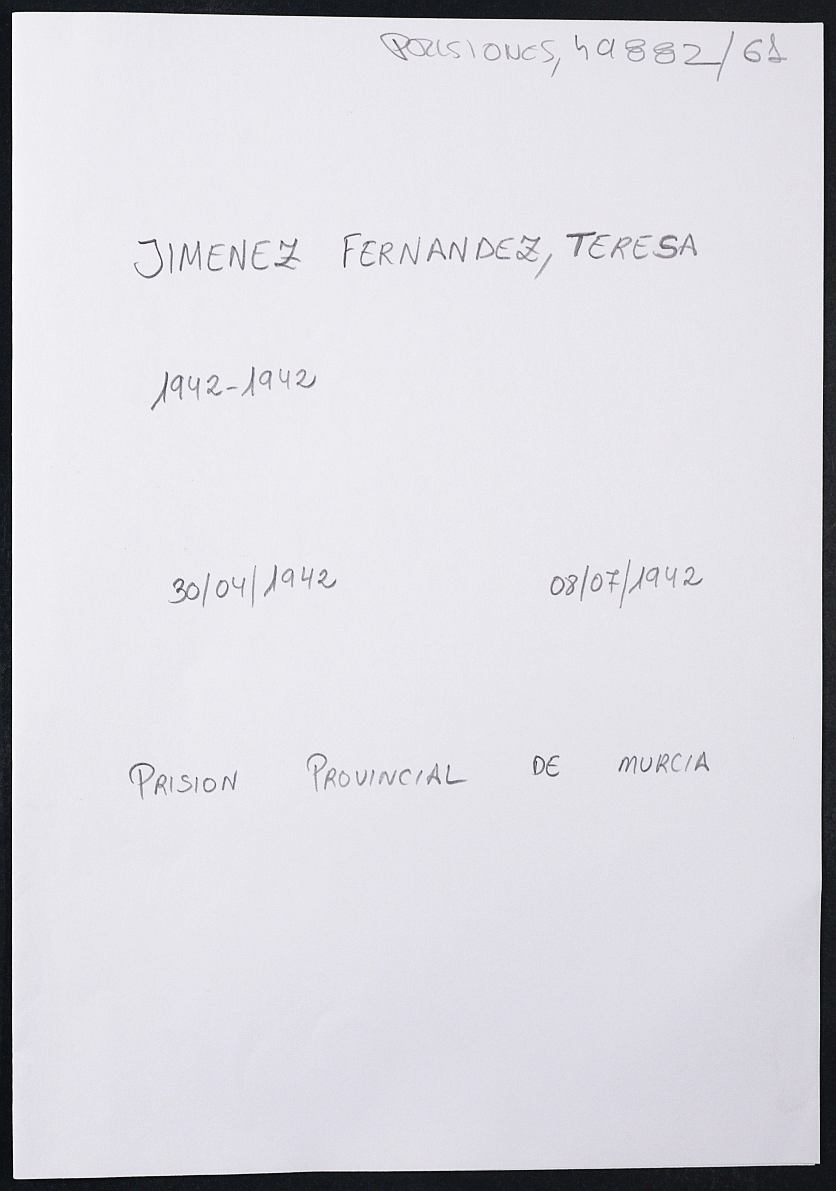 PRISIONES, 49882/61
JIMENEZ FERNANDEZ, TERESA
1942-1942
30/04/1942 08/07/1942
PRISION PROVINCIAL DE MURCIA